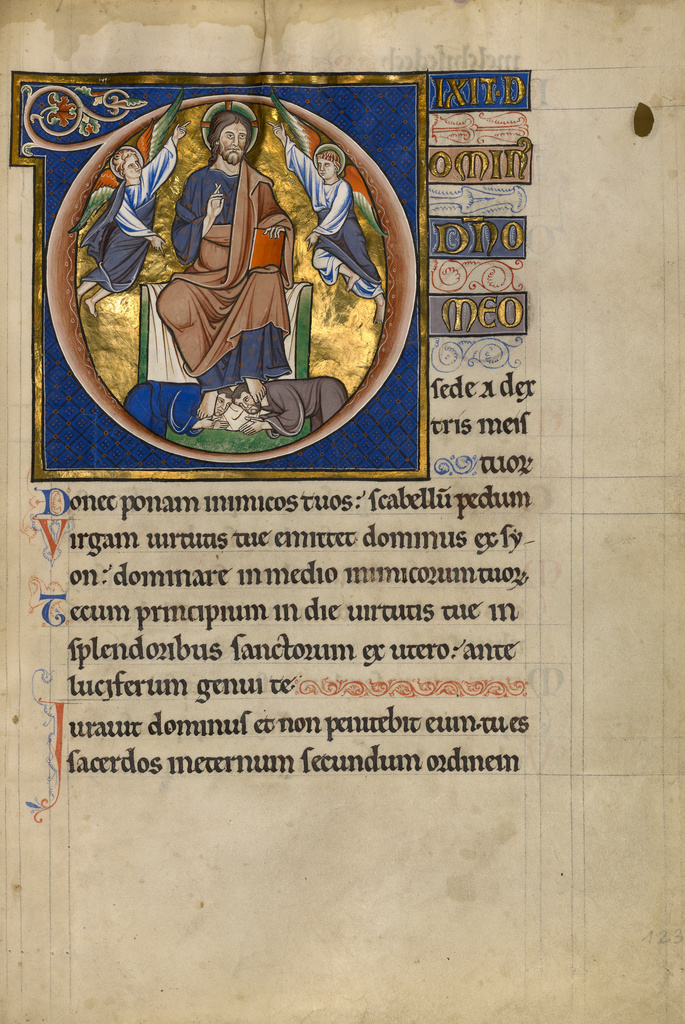 DIXIT D
OMIN̄
DN̄O
MEO
sede a dex
tris meis
tuoꝝ
Donec ponam inimicos tuos: scabellū pedum
Virgam uirtutis tue emittet dominus ex sy-
on: dominare in medio inimicorum tuoꝝ
Tecum principium in die uirtutis tue in
splendoribus sanctorum ex utero: ante
luciferum genui te
Iurauit dominus et non penitebit eum. tu es
sacerdos ineternum secundum ordinem
123